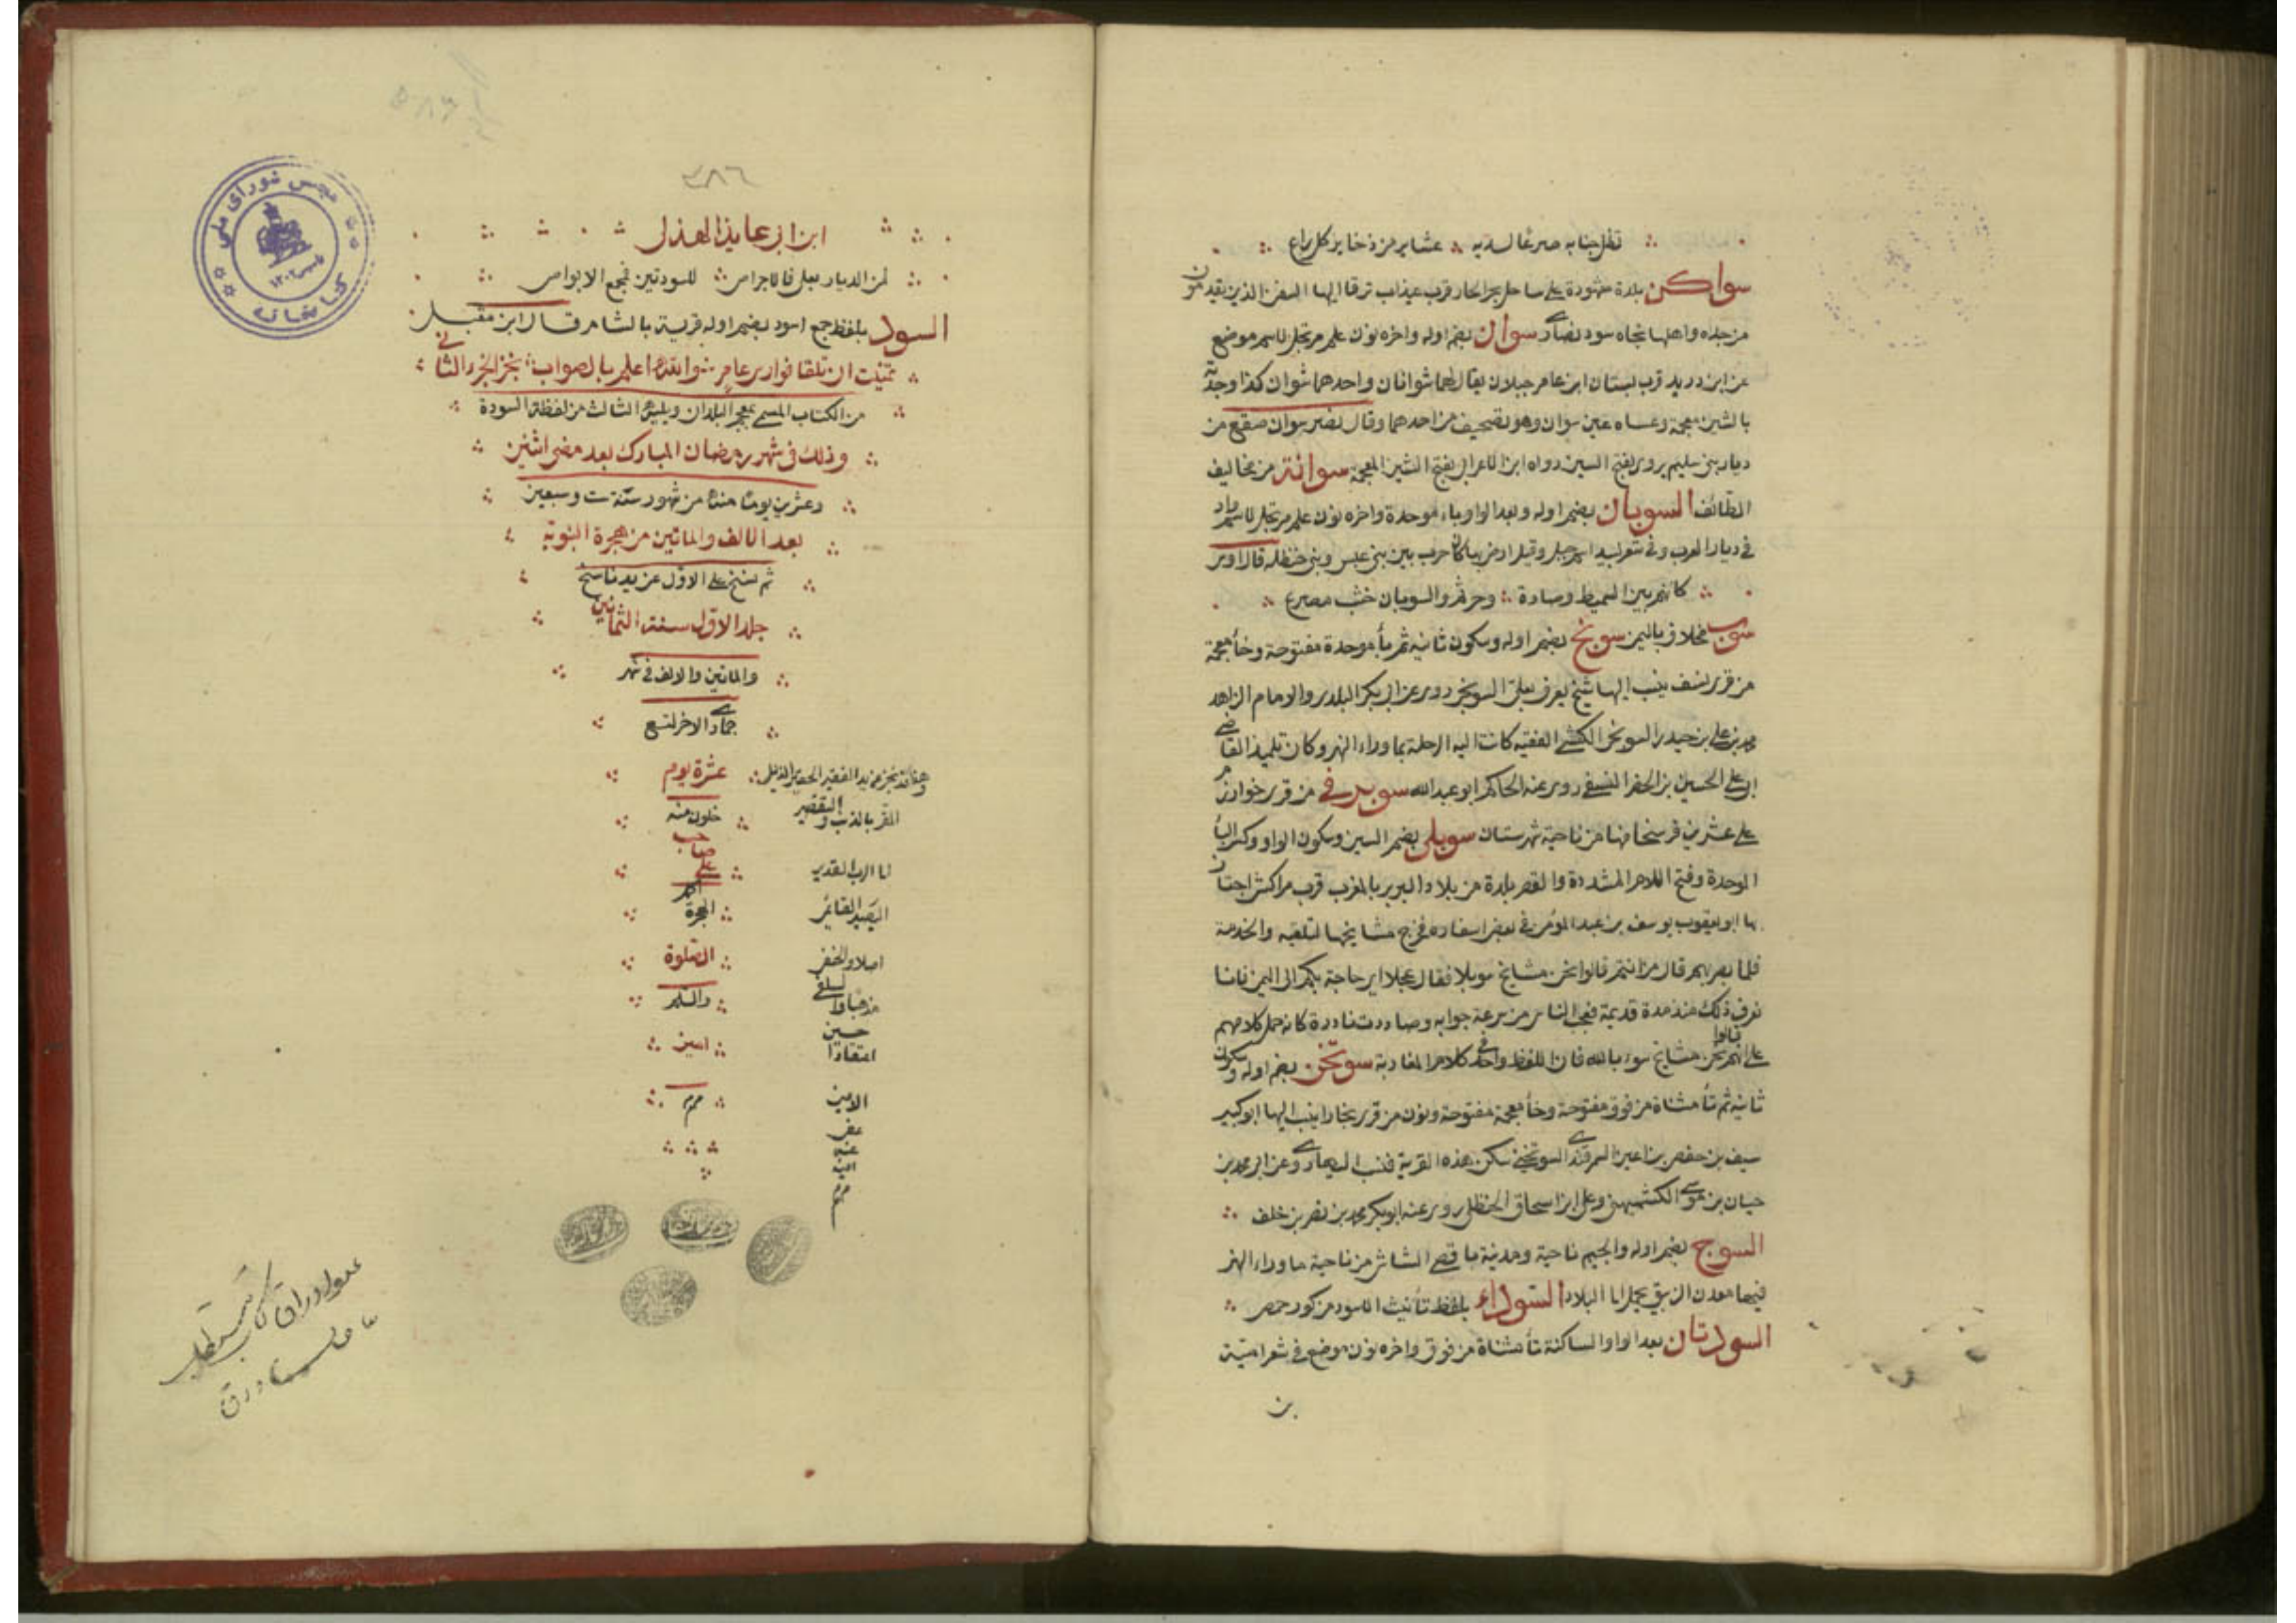 تظل جنابه صرعا لديه عشاير من ذخاير كل راع
سواكن بلدة مشهورة على ساحل بحر الجار قرب عيذاب ترقا اليها السفن الذين يقدمون
من جده واهلها بجاه سود نصارى سوان بضم اوله واخره نون علم مرتجل لاسم موضع
عن ابن دريد قرب بستان ابن عامر جبلان يقال لهما شوانان واحدهما شوان كذا وجدته
بالشين معجمة وعساه عين سوان وهو تصحيف من احدهما وقال نصر سوان صقع من
ديار بني سليم يروى بفتح السين رواه ابن الاعرابي بفتح الشين المعجمة سوانة من مخاليف
الطائف السوبان بضم اوله وبعد الواو باء موحدة واخره نون علم مرتجل لاسم واد
في ديار العرب وفي شعر لبيد اسم جبل وقيل ارض بها كان حرب بين بني عبس وبني حنظله قال اوس
كانهم بين السميط وصارة وجرثم والسوبان خشب مصرع
سوب مخلاف باليمن سوبخ بضم اوله وسكون ثانيه ثم باء موحدة مفتوحة وخاء معجمة
من قرى نسف ينسب اليها شيخ يعرف بعلي السوبخي روى عن ابي بكر البلدي والامام الزاهد
محمد بن علي بن حيدر السوبخي الكشي الفقيه كانت اليه الرحلة بما وراء النهر وكان تلميذ القاضي
ابي علي الحسين بن الخضر النسفي روى عنه الحاكم ابو عبد الله سوبرني من قرى خوارزم
على عشرين فرسخا منها من ناحية شهرستان سوبلى بضم السين وسكون الواو وكسر الباء
الموحدة وفتح اللام المشددة والقصر بلدة من بلاد البربر بالمغرب قرب مراكش اجتاز
بها ابو يعقوب يوسف بن عبد المؤمن في بعض اسفاره فخرج مشايخها لتلقيه والخدمة
فلما بصر بهم قال من انتم قالوا نحن مشايخ سوبلا فقال عجلا اي حاجة بكم الى اليمن فاننا
نعرف ذلك منذ مدة قديمة فعجب الناس من سرعة جوابه وصارت نادرة كانه حمل كلامهم
على انهم قالوا نحن مشايخ سوء بالله فان اللفظ واحد في كلام المغاربة سوتخن بضم اوله وسكون
ثانيه ثم تاء مثناة من فوق مفتوحة وخاء معجمة مفتوحة ونون من قرى بخارا ينسب اليها ابو كبير
سيف بن حفص بن اعين السمرقندي السوتخني سكن هذه القرية فنسب اليها روى عن ابي محمد بن
حبان بن موسى الكشميهني وعلي ابن اسحاق الحنظلي روى عنه ابو بكر محمد بن نصر بن خلف
السوج بضم اوله والجيم ناحية ومدينة باقصى الشاش من ناحية ما وراء النهر
فيها معدن الزيبق يحمل الى البلاد السوداء بلفظ تأنيث الاسود من كور حمص
السودتان بعد الواو الساكنة تاء مثناة من فوق واخره نون موضع في شعر امية
بن
٢٨٦
ابن ابي عايذ الهذلي
لمن الديار بعلى فالاجراص للسودتين فمجمع الابواص
السود بلفظ جمع اسود بضم اوله قرية بالشام قال ابن مقبل
تمنيت ان تلقا فوارس عامر والله اعلم بالصواب نجز الجزء الثاني
من الكتاب المسمى بمعجم البلدان ويليه الثالث من لفظة السودة
وذلك في شهر رمضان المبارك بعد مضي اثنين
وعشرين يوما منه من شهور سنة ست وسبعين
بعد الالف والماتين من هجرة النبوية
ثم نسخ على الاول عن يد ناسخ
جلد الاول سنة الثمانين
والماتين والالف في شهر
جمادى الاخر لتسع
عشرة يوم
خلون منه
على صاحب
الهجرة
الصلوة
والسلم
امين
م م م
وهذا قد نجز عن يد الفقير الحقير الذليل
المقر بالذنب والتقصير
الامين
مجلس شورای ملی
کتابخانه